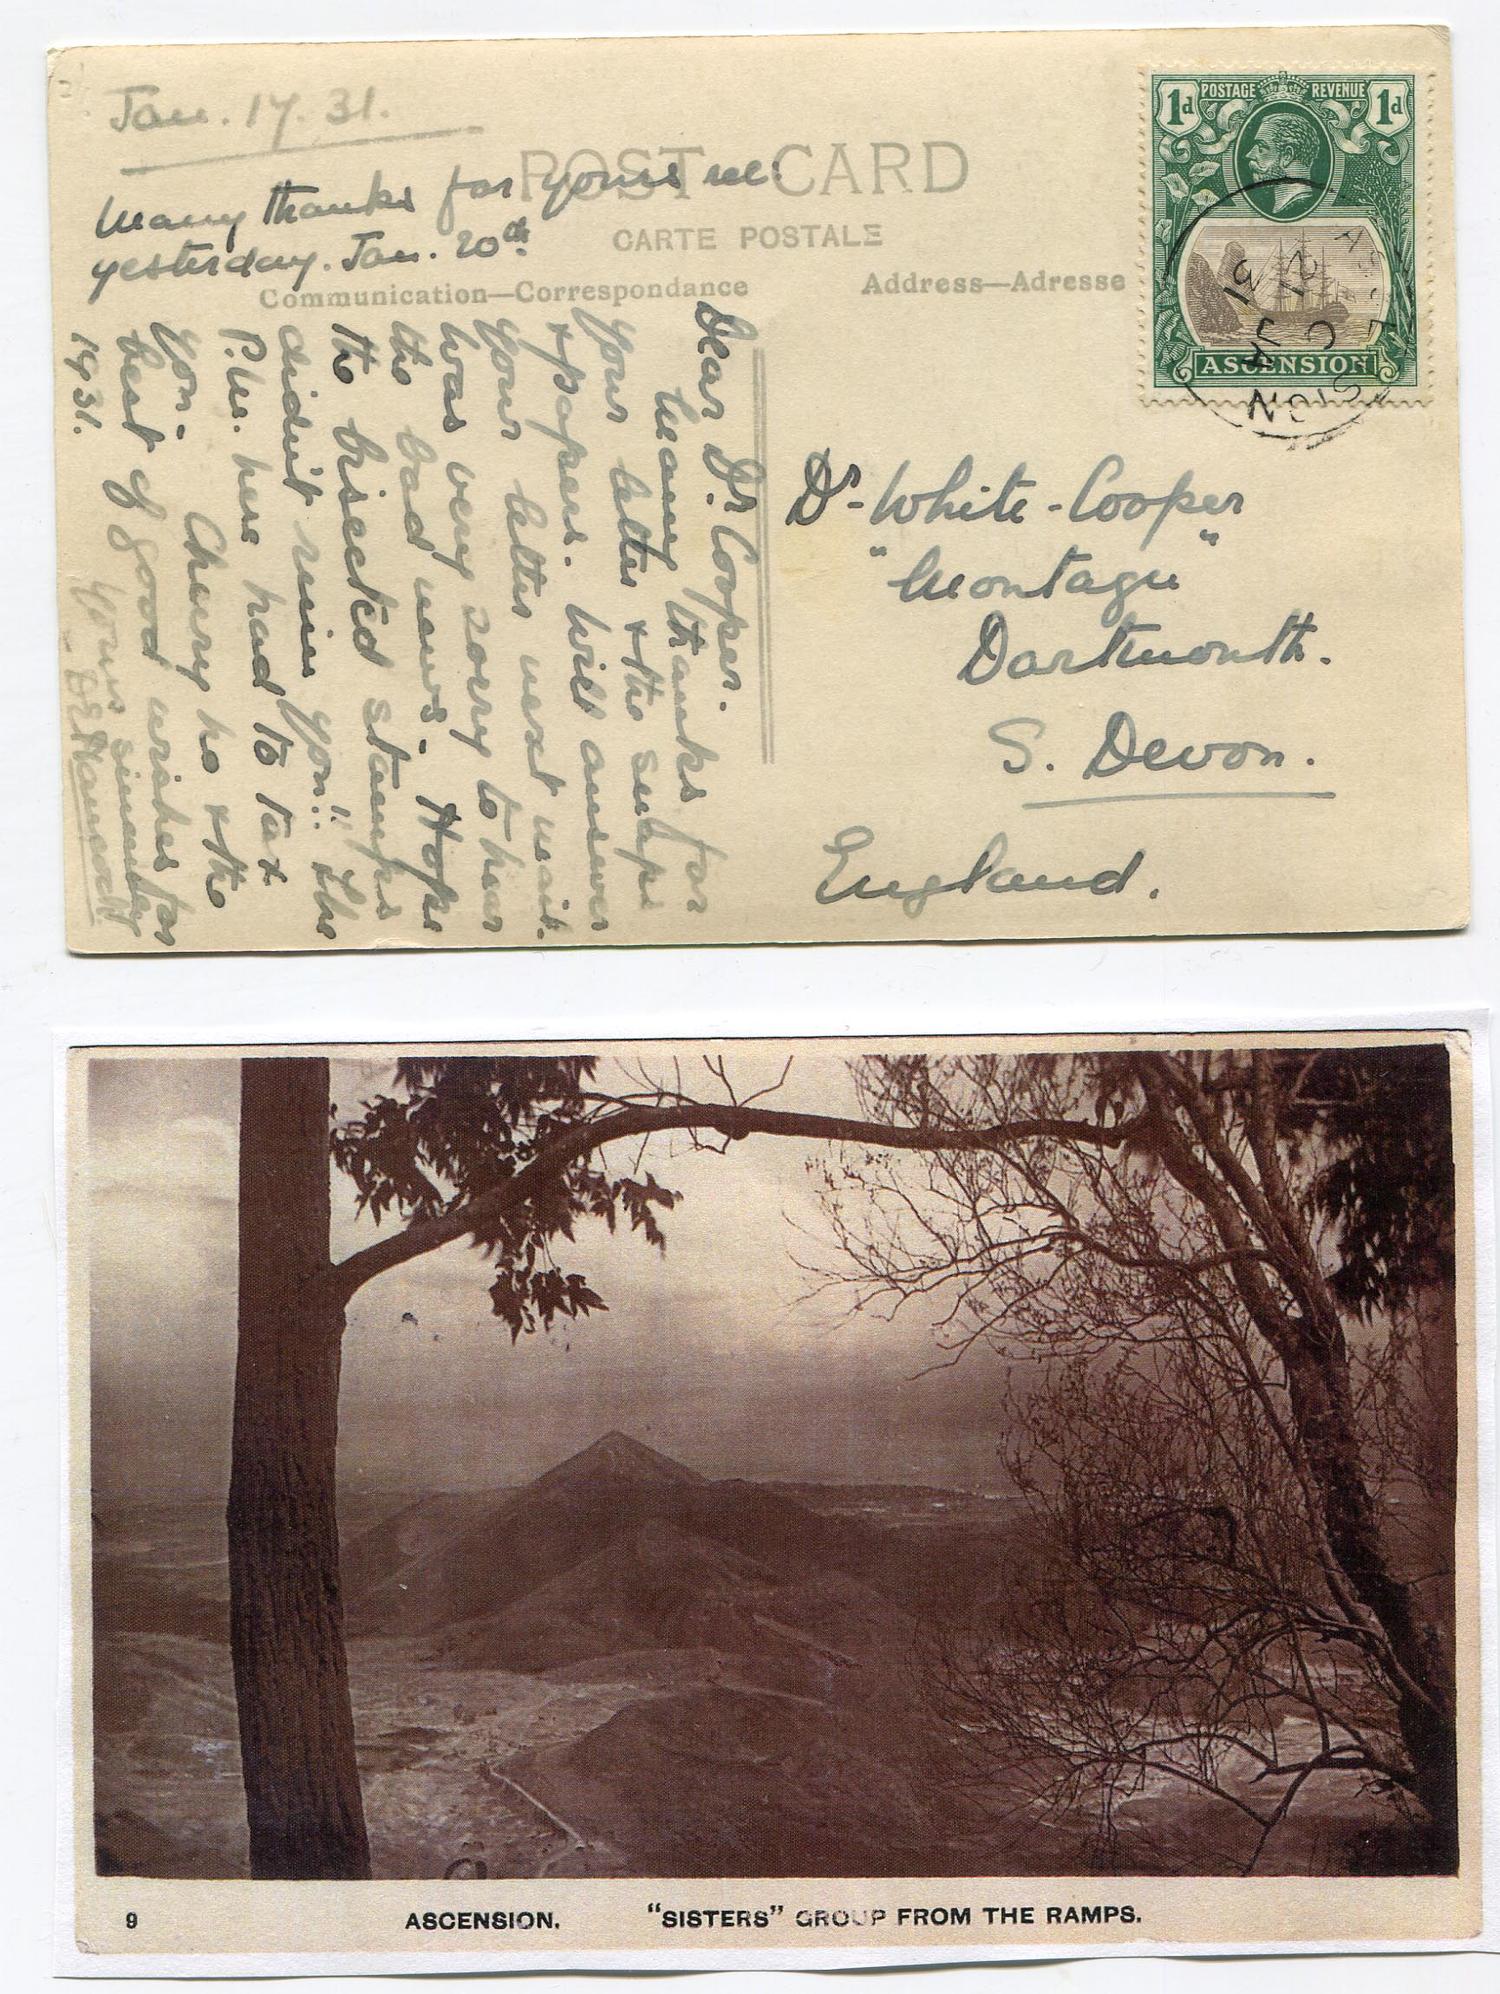 Jan. 17. 31.
Many thanks for yours rec:
yesterday. Jan. 20th.
POST CARD
CARTE POSTALE
Communication—Correspondance
Address—Adresse
POSTAGE REVENUE
1d 1d
ASCENSION
ASCENSION
21 JA
31
Dear Dr Cooper.
Many thanks for
your letter & the snaps
& papers. Will answer
your letter next mail.
Was very sorry to hear
the bad news. Hope
the bisected stamps
didn't ruin you!! The
P.M. here had to tax
you. Cheery ho & the
best of good wishes for
1931.
Yours sincerely
Dr. White-Cooper
"Montagu"
Dartmouth.
S. Devon.
England.
9
ASCENSION. "SISTERS" GROUP FROM THE RAMPS.